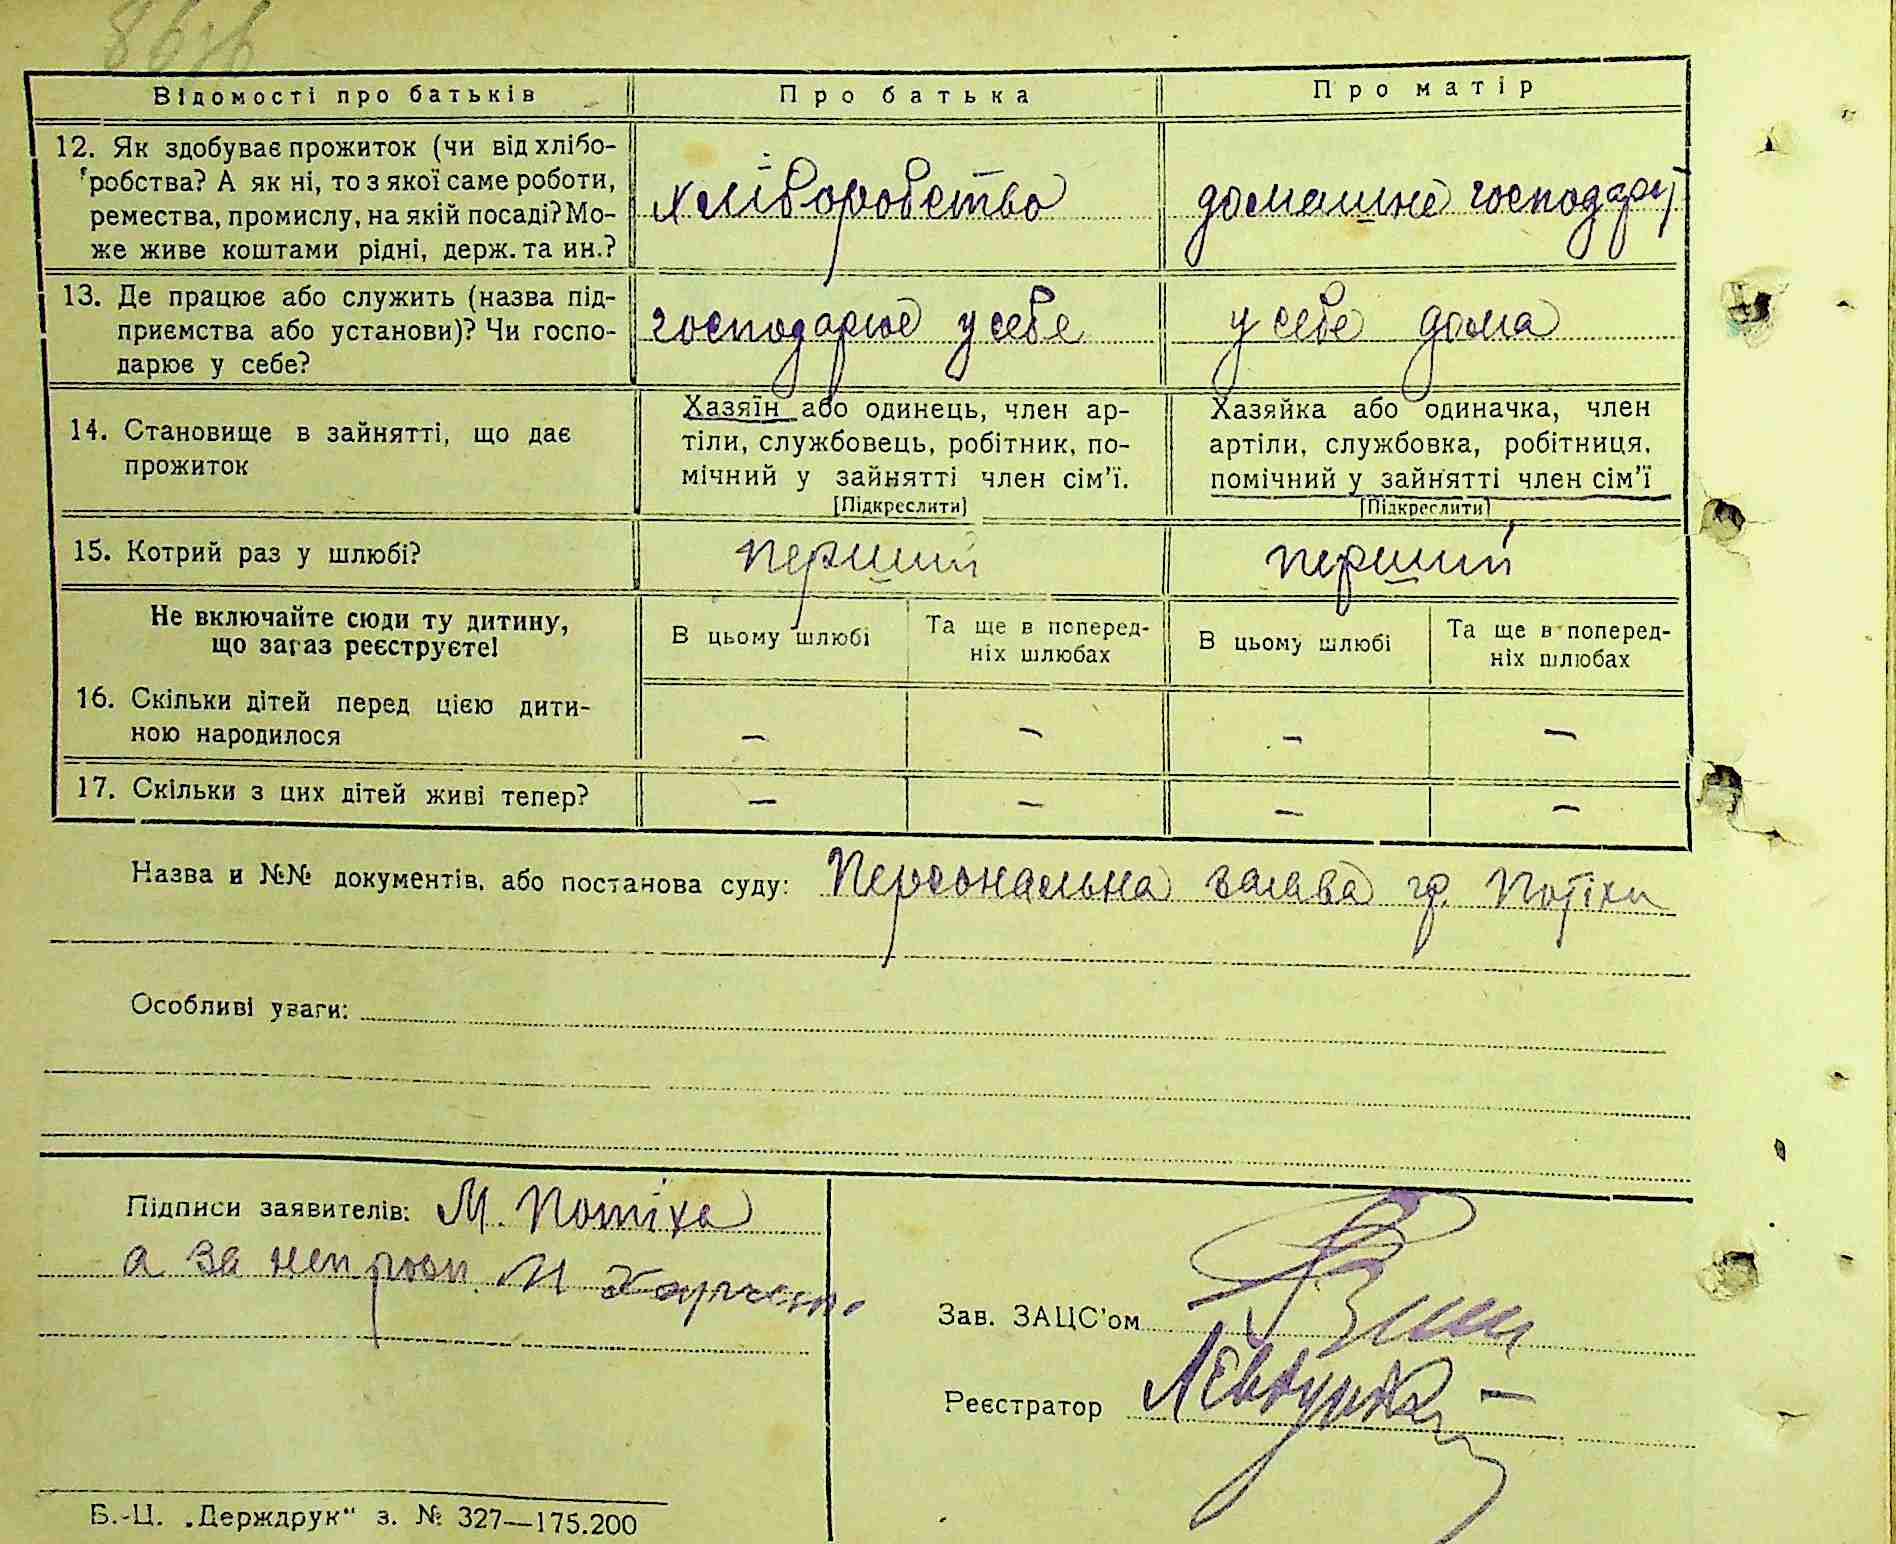 Відомості про батьків Про батька Про матір
12. Як здобуває прожиток (чи від хлібо-
робства? А як ні, то з якої саме роботи,
ремества, промислу, на якій посаді? Мо-
же живе коштами рідні, держ. та ин.?
хліборобство
домашнє господар
13. Де працює або служить (назва під-
приємства або установи)? Чи госпо-
дарює у себе?
господарює у себе
у себе дома
14. Становище в зайнятті, що дає
прожиток
Хазяїн або одинець, член ар-
тіли, службовець, робітник, по-
мічний у зайнятті член сім'ї.
[Підкреслити]
Хазяйка або одиначка, член
артіли, службовка, робітниця,
помічний у зайнятті член сім'ї
[Підкреслити]
15. Котрий раз у шлюбі? перший перший
Не включайте сюди ту дитину,
що зараз реєструєте!
В цьому шлюбі
Та ще в поперед-
ніх шлюбах
В цьому шлюбі
Та ще в поперед-
ніх шлюбах
16. Скільки дітей перед цією дити-
ною народилося
– – – –
17. Скільки з цих дітей живі тепер? – – – –
Назва и №№ документів, або постанова суду: Персональна заява гр. Потіхи
Особливі уваги:
Підписи заявителів: М. Потіха
а за неп
Зав. ЗАЦС'ом
Реєстратор
Б.-Ц. „Держдрук" з. № 327—175.200